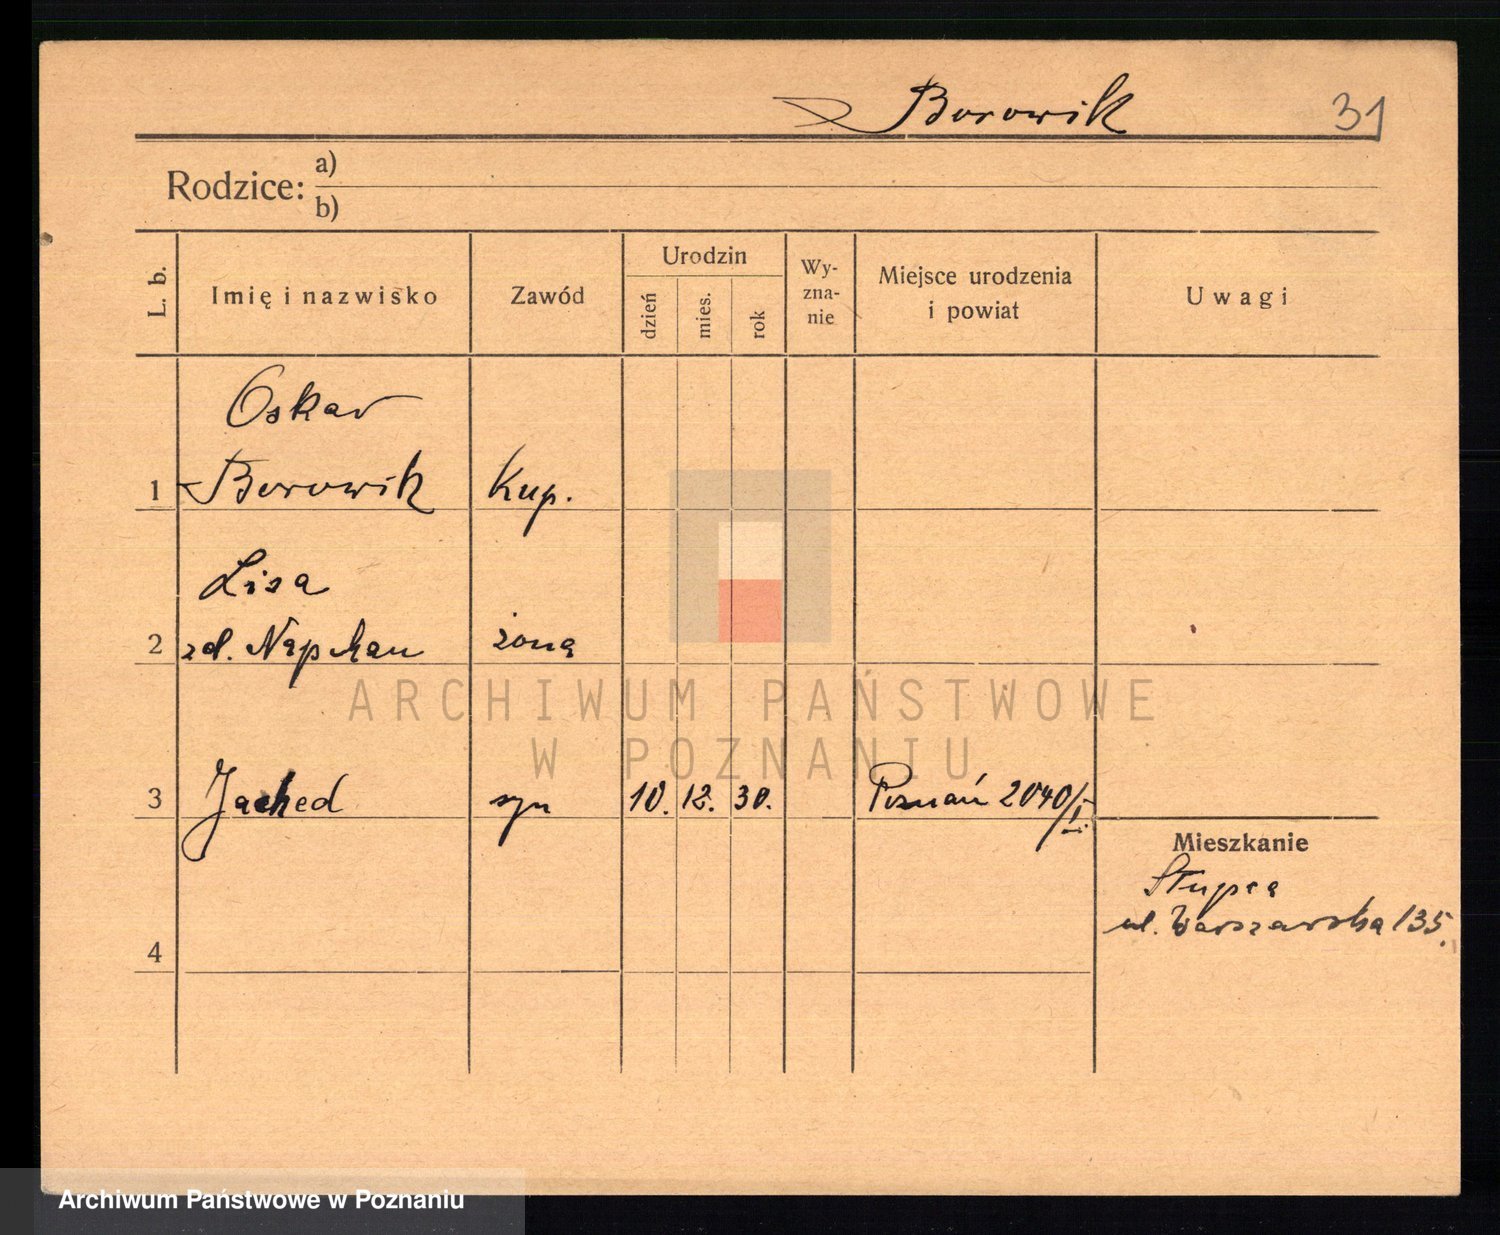 Borowik 31
Rodzice: a)
b)
L. b.
Imię i nazwisko
Zawód
Urodzin
dzień
mies.
rok
Wy-
zna-
nie
Miejsce urodzenia
i powiat
Uwagi
Oskar
1 Borowik Kup.
Lisa
2 zd. żona
3 Jached syn 10. 12. 30. Poznań 2040/I.
Mieszkanie
Słupca
ul. Warszawska 135.
4
ARCHIWUM PAŃSTWOWE
W POZNANIU
Archiwum Państwowe w Poznaniu